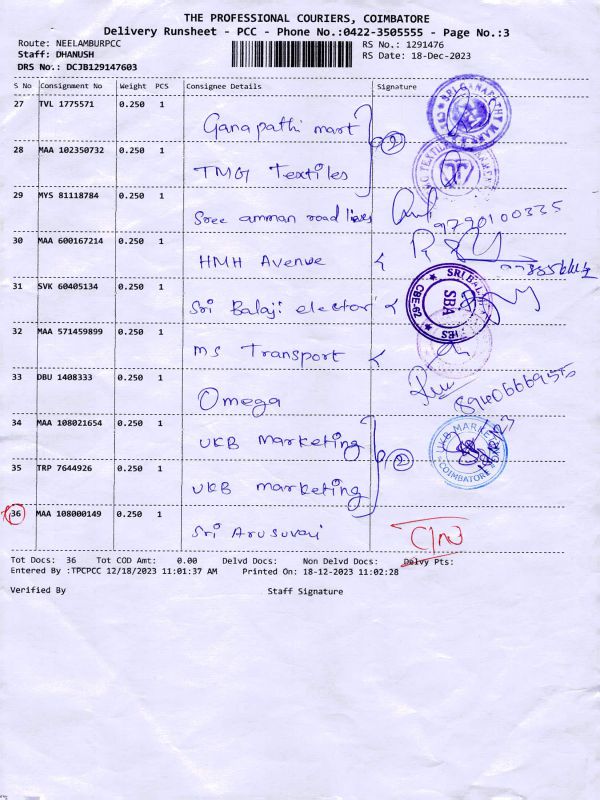 THE PROFESSIONAL COURIERS, COIMBATORE
Delivery Runsheet - PCC - Phone No.:0422-3505555 - Page No.:3
Route: NEELAMBURPCC RS No.: 1291476
Staff: DHANUSH RS Date: 18-Dec-2023
DRS No.: DCJB129147603
S No Consignment No Weight PCS Consignee Details Signature
27 TVL 1775571 0.250 1
Ganapathi mart
28 MAA 102350732 0.250 1
TMG Textiles
29 MYS 81118784 0.250 1
Sree amman road lines 9790100335
30 MAA 600167214 0.250 1
HMH Avenue
31 SVK 60405134 0.250 1
Sri Balaji elector
SRI BALAJI
SBA
CBE-62
32 MAA 571459899 0.250 1
MS Transport
33 DBU 1408333 0.250 1
Omega
34 MAA 108021654 0.250 1
UKB marketing
35 TRP 7644926 0.250 1
UKB marketing
2
UKB MARKETING
COIMBATORE
36 MAA 108000149 0.250 1
Sri Arusuvai
Tot Docs: 36 Tot COD Amt: 0.00 Delvd Docs: Non Delvd Docs: Delvy Pts:
Entered By :TPCPCC 12/18/2023 11:01:37 AM Printed On: 18-12-2023 11:02:28
Verified By Staff Signature